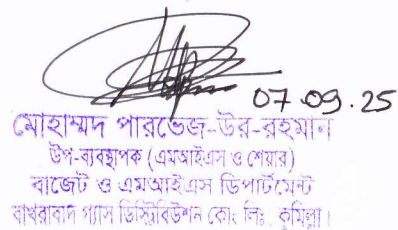 07.09.25
মোহাম্মদ পারভেজ-উর-রহমান
উপ-ব্যবস্থাপক (এমআইএস ও শেয়ার)
বাজেট ও এমআইএস ডিপার্টমেন্ট
বাখরাবাদ গ্যাস ডিস্ট্রিবিউশন কোং লিঃ, কুমিল্লা।